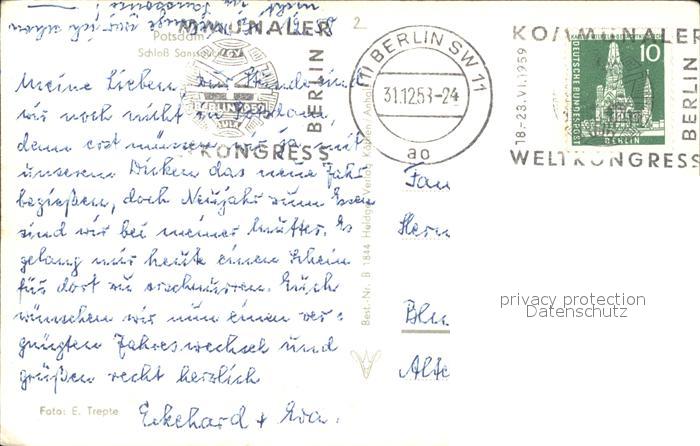 Potsdam
Schloß Sanssouci
2
KOMMUNALER
WELTKONGRESS
BERLIN
BERLIN 1959
(1) BERLIN SW 11
31.12.58-24
ao
KOMMUNALER
WELTKONGRESS
BERLIN
18.-23.VI.1959
DEUTSCHE BUNDESPOST
10
BERLIN
Meine Lieben, zur Stunde sind
wir noch nicht in Potsdam,
denn erst müssen wir ja mit
unserem Dicken das neue Jahr
begießen, doch Neujahr zum Essen
sind wir bei meiner Mutter. Es
gelang mir heute einen Schein
für dort zu erschnurren. Euch
wünschen wir nun einen ver-
gnügten Jahreswechsel und
grüßen recht herzlich
Eckehard + Eva.
Fam
Herrn
Blu
Alte
Best.-Nr. B 1844 Verlag Köthen/Anh.
Foto: E. Trepte
privacy protection
Datenschutz